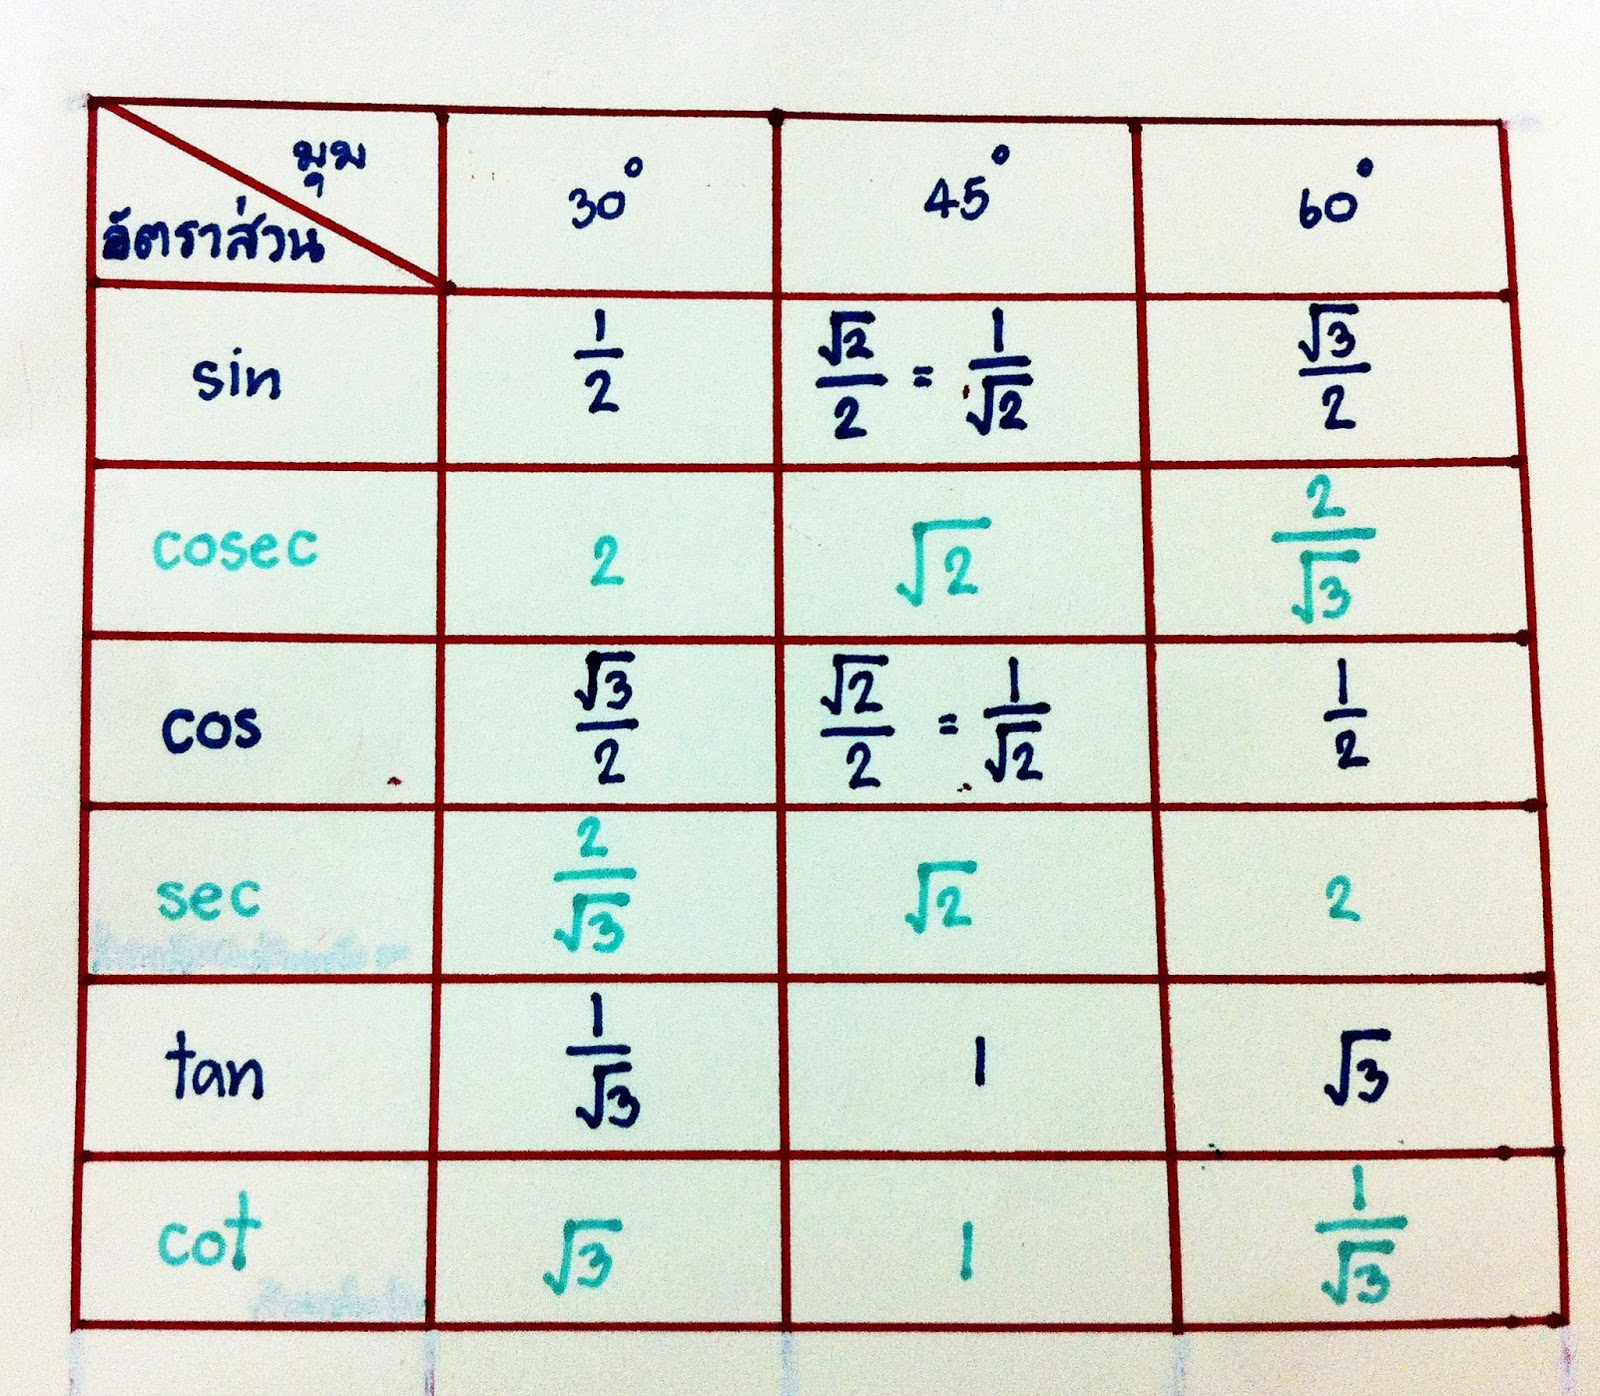 มุม
อัตราส่วน 30° 45° 60°
sin 1/2 √2/2 = 1/√2 √3/2
cosec 2 √2 2/√3
cos √3/2 √2/2 = 1/√2 1/2
sec 2/√3 √2 2
tan 1/√3 1 √3
cot √3 1 1/√3